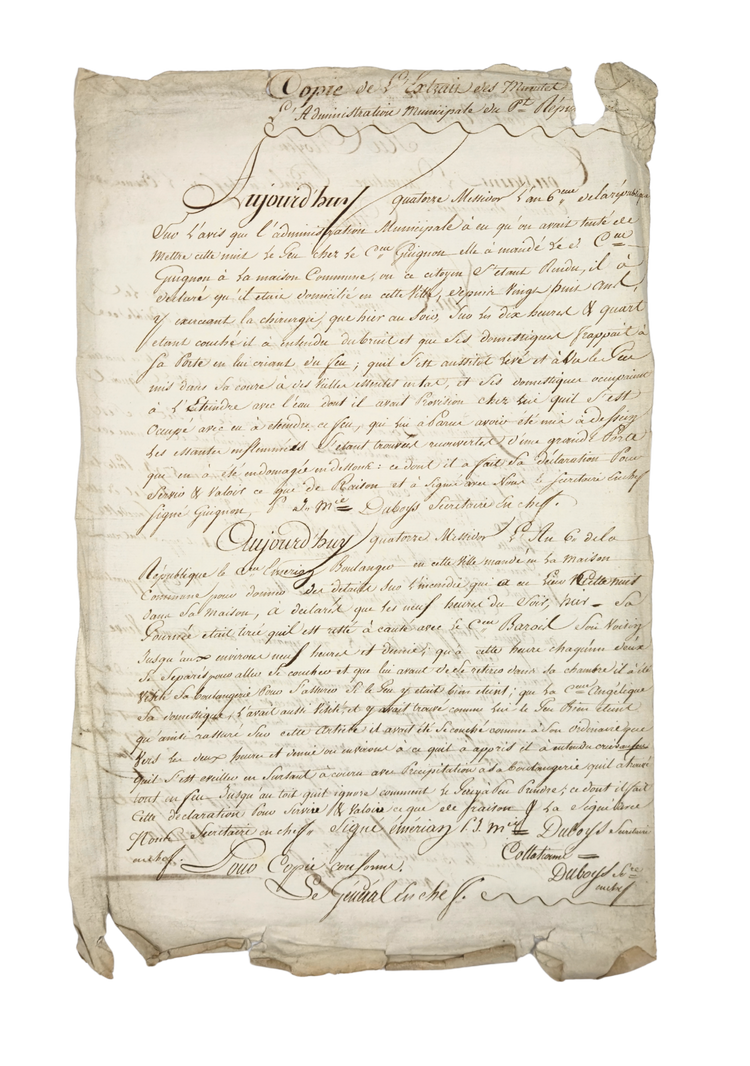 Copie de L'Extrait des Minutes
L'Administration Municipale du Pt Répu
Aujourd'huy quatorze Messidor L'an 6.eme de la république
Sur L'avis que L'administration Municipale à eu qu'on avait tenté de
Mettre cette nuit le feu chez Le C.en Guignon elle à mandé le d. C.en
Guignon à La maison Commune, ou ce citoyen S'etant Rendu, il à
declaré qu'il etait domicilié en cette Ville, depuis Vingt huit ans,
y exercant la chirurgie, que hier au Soir, Sur Les dix heures & quart
etant couché il à entendu du bruit et que Ses domestiques frappait à
Sa Porte en lui criant au feu; quil S'est aussitôt Levé et à Vu le feu
mis dans Sa coure à des et Ses domestiques occupaient
à L'Eteindre avec L'eau dont il avait Provision chez Lui quil S'est
Occupé avec eu à eteindre ce feu, qui lui à Parue avoir été mis à dessein
Les enflammées S'etant trouvées recouvertes d'une grande Porte
qui en à été endomagée en dessous: ce dont il à fait Sa déclaration Pour
Servir & Valoir ce que de Raison et à Signé avec Nous le Secretaire en chef
Signé Guignon, P. J. M.ie Duboys Secretaire en chef.
Aujourd'huy quatorze Messidor L'An 6.e de la
République le C.en Emerian Boulanger en cette Ville mandé en La maison
Commune pour donner des détails Sur L'incendie qui a eu Lieu Cette nuit
dans Sa maison, à déclaré que les neuf heures du Soir, hier Sa
fournée etait tirée quil est resté à causé avec le C.en Baroil Son Voisin
Jusqu'aux environs neuf heures et demie; qu'à cette heure chaqu'un deux
Se Separés pour aller Se coucher et que lui avant de Se retirer dans Sa chambre il à été
Visité Sa boulangerie Pour S'assurer Si le feu y etait bien eteint; que La C.enne Angélique
Sa domestique, L'avait aussi Visitée et y avait trouvé comme Lui le feu Bien éteint
qu'ainsi rassuré Sur cette Article il avait été Se couché comme à Son Ordinaire que
Vers les deux heures et demie ou environs à ce quil à appris il à entendu crier au feu
quil S'est eveillé en Sursaut à couru avec Précipitation à Sa boulangerie quil à trouvé
tout en feu Jusqu'au toit quil ignore comment le feu y à Pu Prendre; ce dont il fait
Cette déclaration Pour Servir & Valoir ce que de raison & La Signé avec
Nous Secretaire en chef. Signé émérian P. J. M.ie Duboys Secretaire
en chef. Collationné
Pour Copie conforme. Duboys S.re
en chef
Le Général en chef.